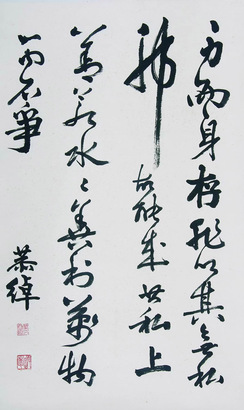 而身存非以其無私
邪故能成其私上
善若水〻善利萬物
而不爭
恭綽